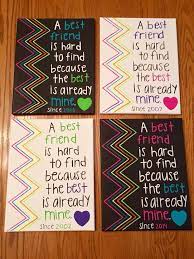 A best
friend
is hard
to find
because
the best
is already
mine.
SINCE 2002
A best
friend
is hard
to find
because
the best
is already
mine.
SINCE 2007
A best
friend
is hard
to find
because
the best
is already
mine.
SINCE 2002
A best
friend
is hard
to find
because
the best
is already
mine.
SINCE 2014